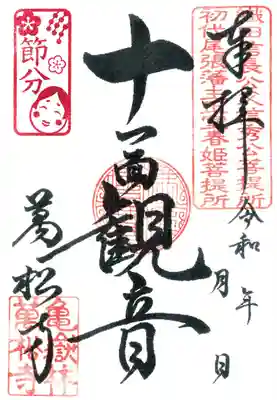 奉拝
令和 年 月 日
織田信長公父信秀公菩提所
初代尾張藩主正室春姫菩提所
十一面観音
萬松寺
節分
亀嶽林
萬松寺